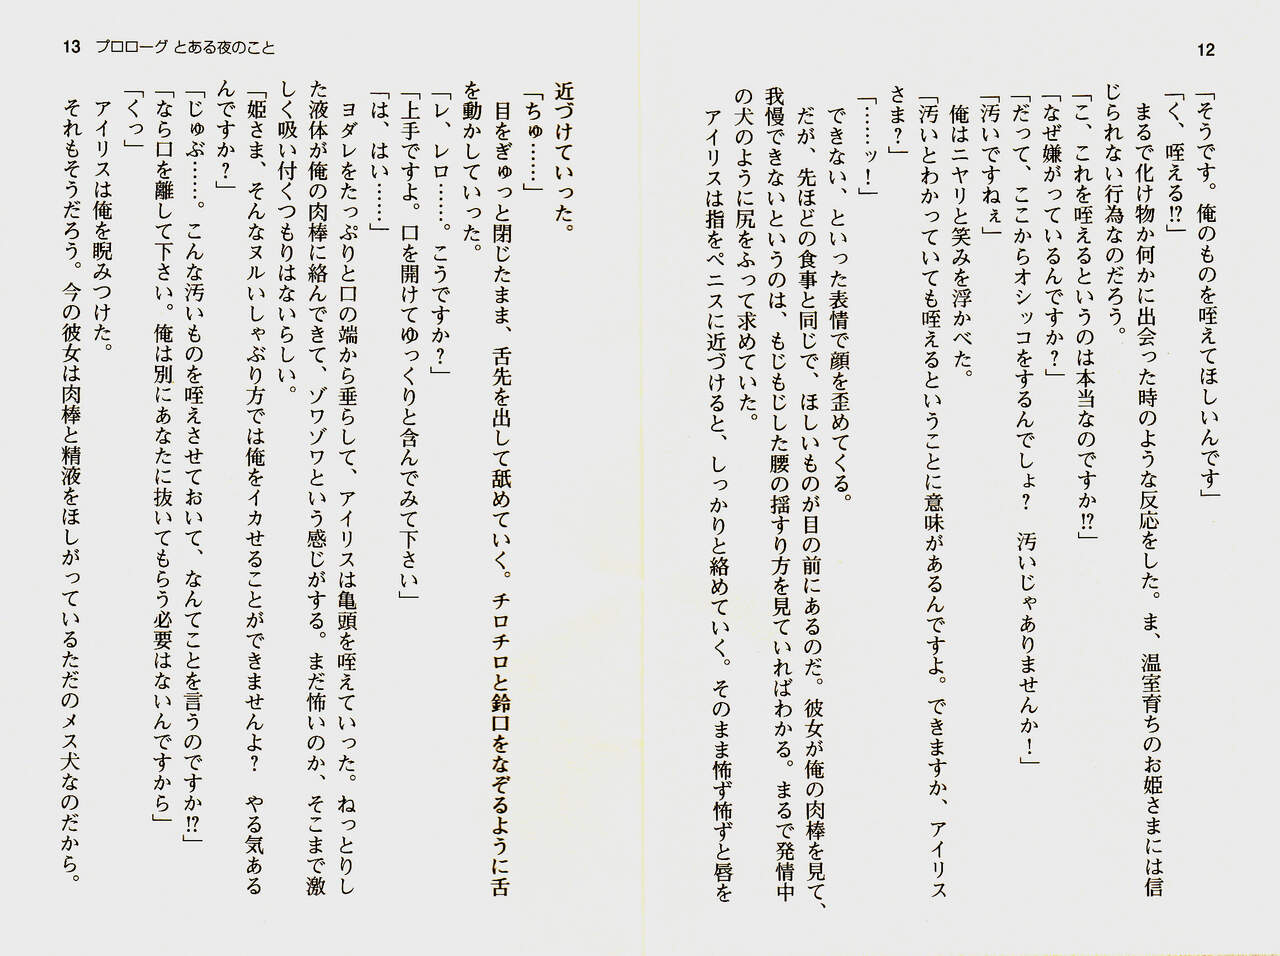 12
「そうです。俺のものを咥えてほしいんです」
「く、咥える!?」
まるで化け物か何かに出会った時のような反応をした。ま、温室育ちのお姫さまには信
じられない行為なのだろう。
「こ、これを咥えるというのは本当なのですか!?」
「なぜ嫌がっているんですか？」
「だって、ここからオシッコをするんでしょ？　汚いじゃありませんか！」
「汚いですねぇ」
俺はニヤリと笑みを浮かべた。
「汚いとわかっていても咥えるということに意味があるんですよ。できますか、アイリス
さま？」
「……ッ！」
できない、といった表情で顔を歪めてくる。
だが、先ほどの食事と同じで、ほしいものが目の前にあるのだ。彼女が俺の肉棒を見て、
我慢できないというのは、もじもじした腰の揺すり方を見ていればわかる。まるで発情中
の犬のように尻をふって求めていた。
アイリスは指をペニスに近づけると、しっかりと絡めていく。そのまま怖ず怖ずと唇を
13　プロローグ とある夜のこと
近づけていった。
「ちゅ……」
目をぎゅっと閉じたまま、舌先を出して舐めていく。チロチロと鈴口をなぞるように舌
を動かしていった。
「レ、レロ……。こうですか？」
「上手ですよ。口を開けてゆっくりと含んでみて下さい」
「は、はい……」
ヨダレをたっぷりと口の端から垂らして、アイリスは亀頭を咥えていった。ねっとりし
た液体が俺の肉棒に絡んできて、ゾワゾワという感じがする。まだ怖いのか、そこまで激
しく吸い付くつもりはないらしい。
「姫さま、そんなヌルいしゃぶり方では俺をイカせることができませんよ？　やる気ある
んですか？」
「じゅぶ……。こんな汚いものを咥えさせておいて、なんてことを言うのですか!?」
「なら口を離して下さい。俺は別にあなたに抜いてもらう必要はないんですから」
「くっ」
アイリスは俺を睨みつけた。
それもそうだろう。今の彼女は肉棒と精液をほしがっているただのメス犬なのだから。